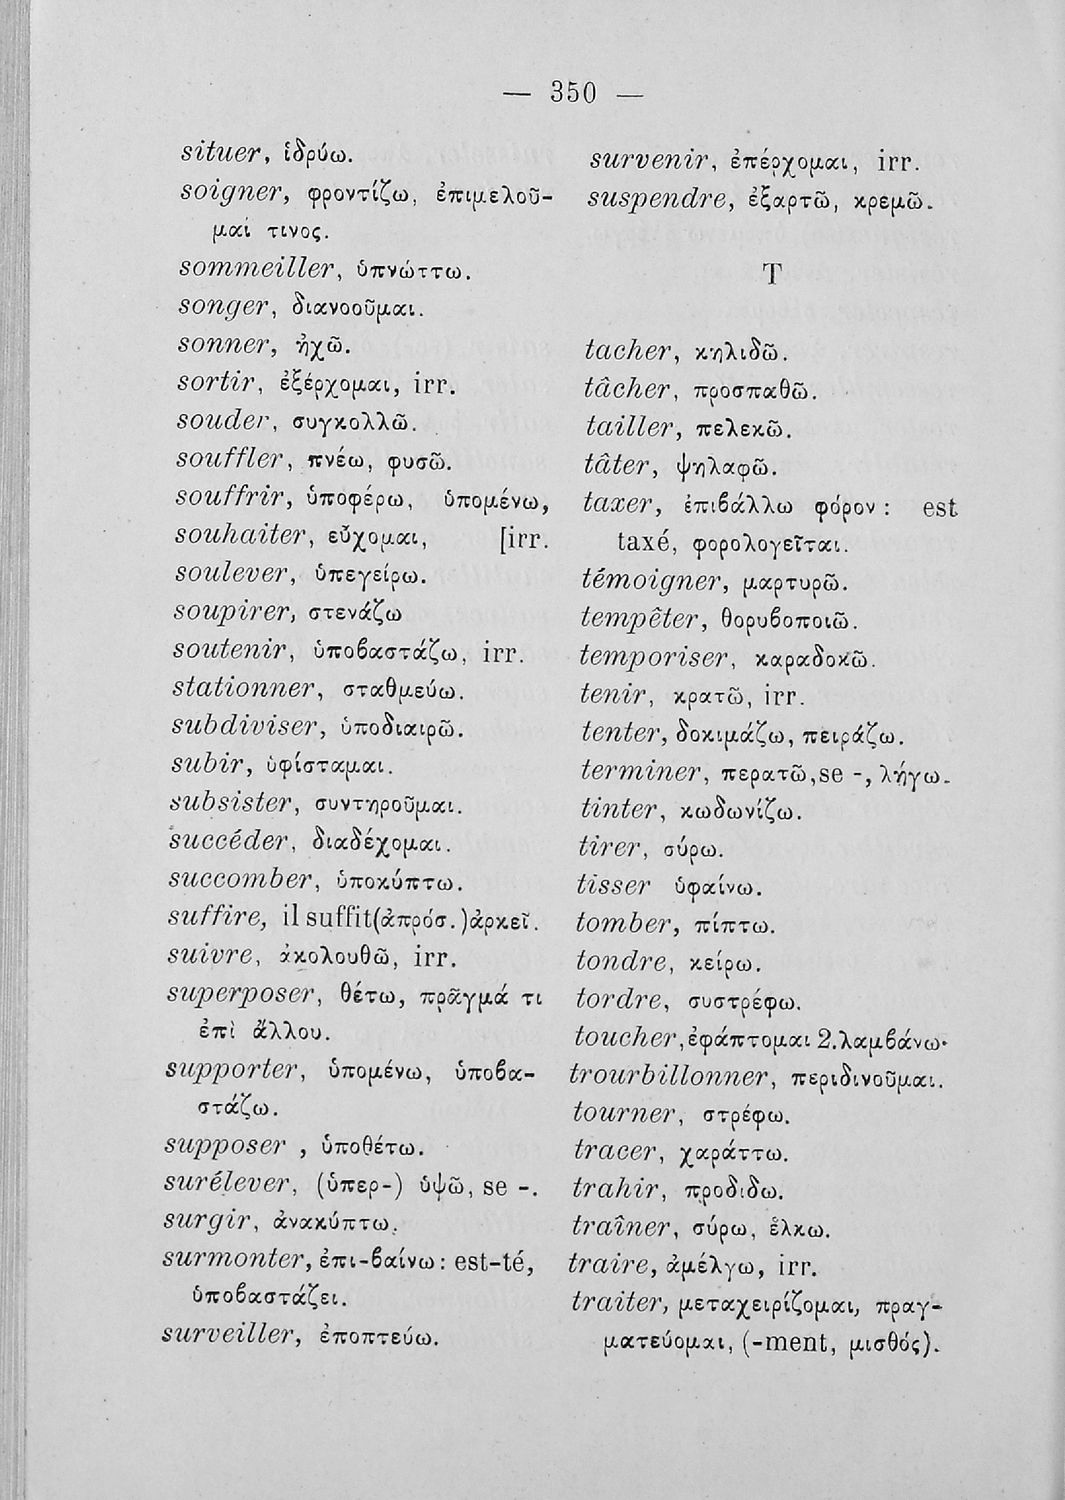 — 350 —
situer, ἱδρύω.
soigner, φροντίζω, ἐπιμελοῦ-
μαί τινος.
sommeiller, ὑπνώττω.
songer, διανοοῦμαι.
sonner, ἠχῶ.
sortir, ἐξέρχομαι, irr.
souder, συγκολλῶ.
souffler, πνέω, φυσῶ.
souffrir, ὑποφέρω, ὑπομένω,
souhaiter, εὔχομαι, [irr.
soulever, ὑπεγείρω.
soupirer, στενάζω
soutenir, ὑποβαστάζω, irr.
stationner, σταθμεύω.
subdiviser, ὑποδιαιρῶ.
subir, ὑφίσταμαι.
subsister, συντηροῦμαι.
succéder, διαδέχομαι.
succomber, ὑποκύπτω.
suffire, il suffit(ἀπρόσ.)ἀρκεῖ.
suivre, ἀκολουθῶ, irr.
superposer, θέτω, πρᾶγμά τι
ἐπὶ ἄλλου.
supporter, ὑπομένω, ὑποβα-
στάζω.
supposer , ὑποθέτω.
surélever, (ὑπερ-) ὑψῶ, se -.
surgir, ἀνακύπτω.
surmonter, ἐπι-βαίνω: est-té,
ὑποβαστάζει.
surveiller, ἐποπτεύω.
survenir, ἐπέρχομαι, irr.
suspendre, ἐξαρτῶ, κρεμῶ.
T
tacher, κηλιδῶ.
tâcher, προσπαθῶ.
tailler, πελεκῶ.
tâter, ψηλαφῶ.
taxer, ἐπιβάλλω φόρον : est
taxé, φορολογεῖται.
témoigner, μαρτυρῶ.
tempêter, θορυβοποιῶ.
temporiser, καραδοκῶ.
tenir, κρατῶ, irr.
tenter, δοκιμάζω, πειράζω.
terminer, περατῶ,se -, λήγω.
tinter, κωδωνίζω.
tirer, σύρω.
tisser ὑφαίνω.
tomber, πίπτω.
tondre, κείρω.
tordre, συστρέφω.
toucher,ἐφάπτομαι 2.λαμβάνω·
trourbillonner, περιδινοῦμαι.
tourner, στρέφω.
tracer, χαράττω.
trahir, προδιδω.
traîner, σύρω, ἕλκω.
traire, ἀμέλγω, irr.
traiter, μεταχειρίζομαι, πραγ-
ματεύομαι, (-ment, μισθός).